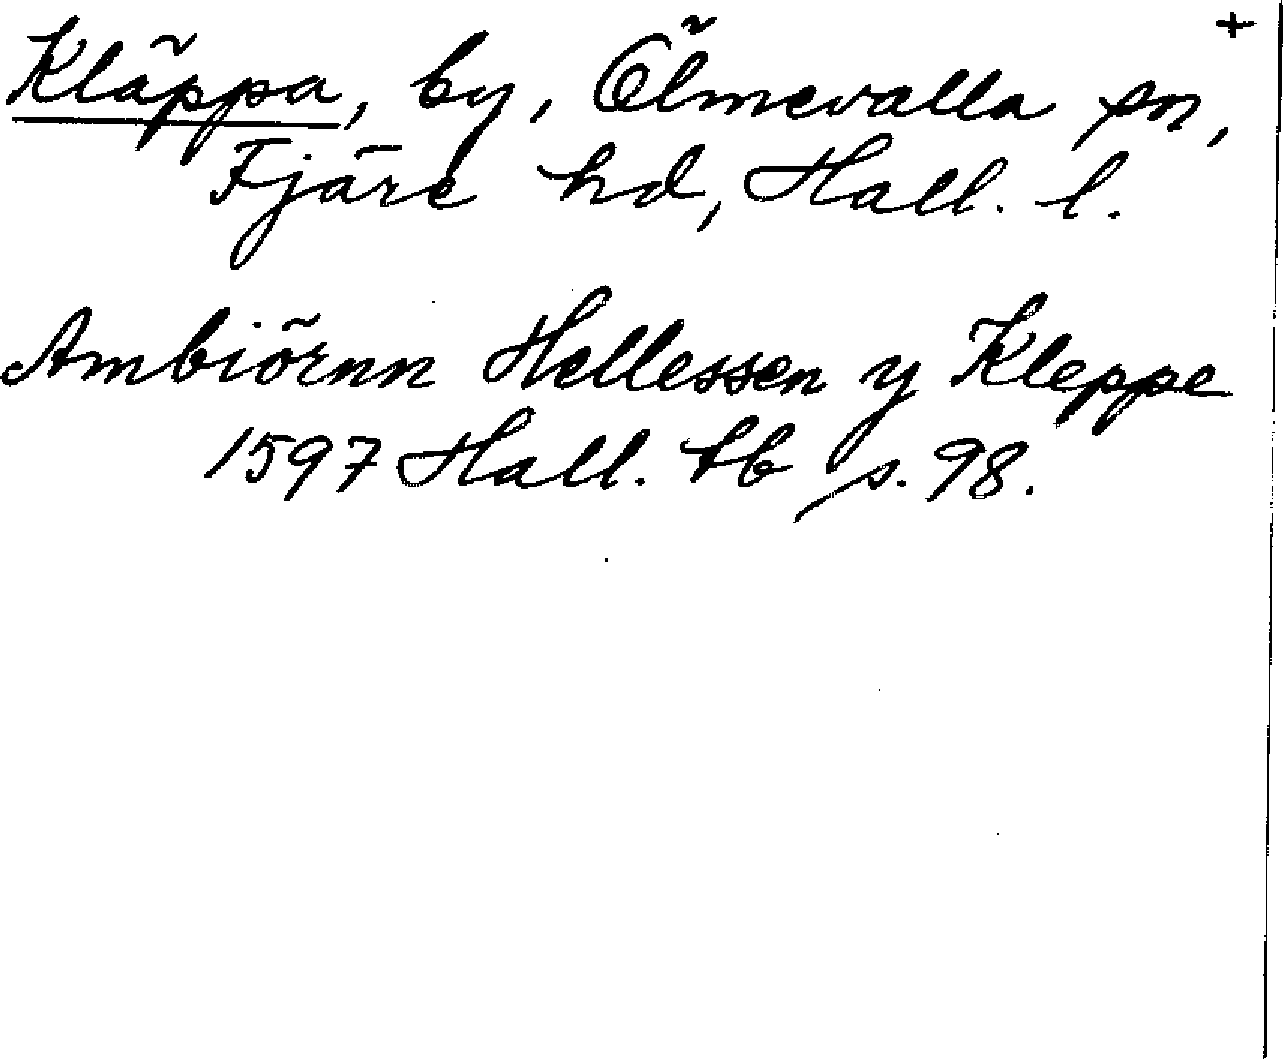 Kläppa, by, Ölmevalla sn, +
Fjäre hd, Hall. l.
Ambiörnn Hellessen y Kleppe
1597 Hall. tb s. 98.